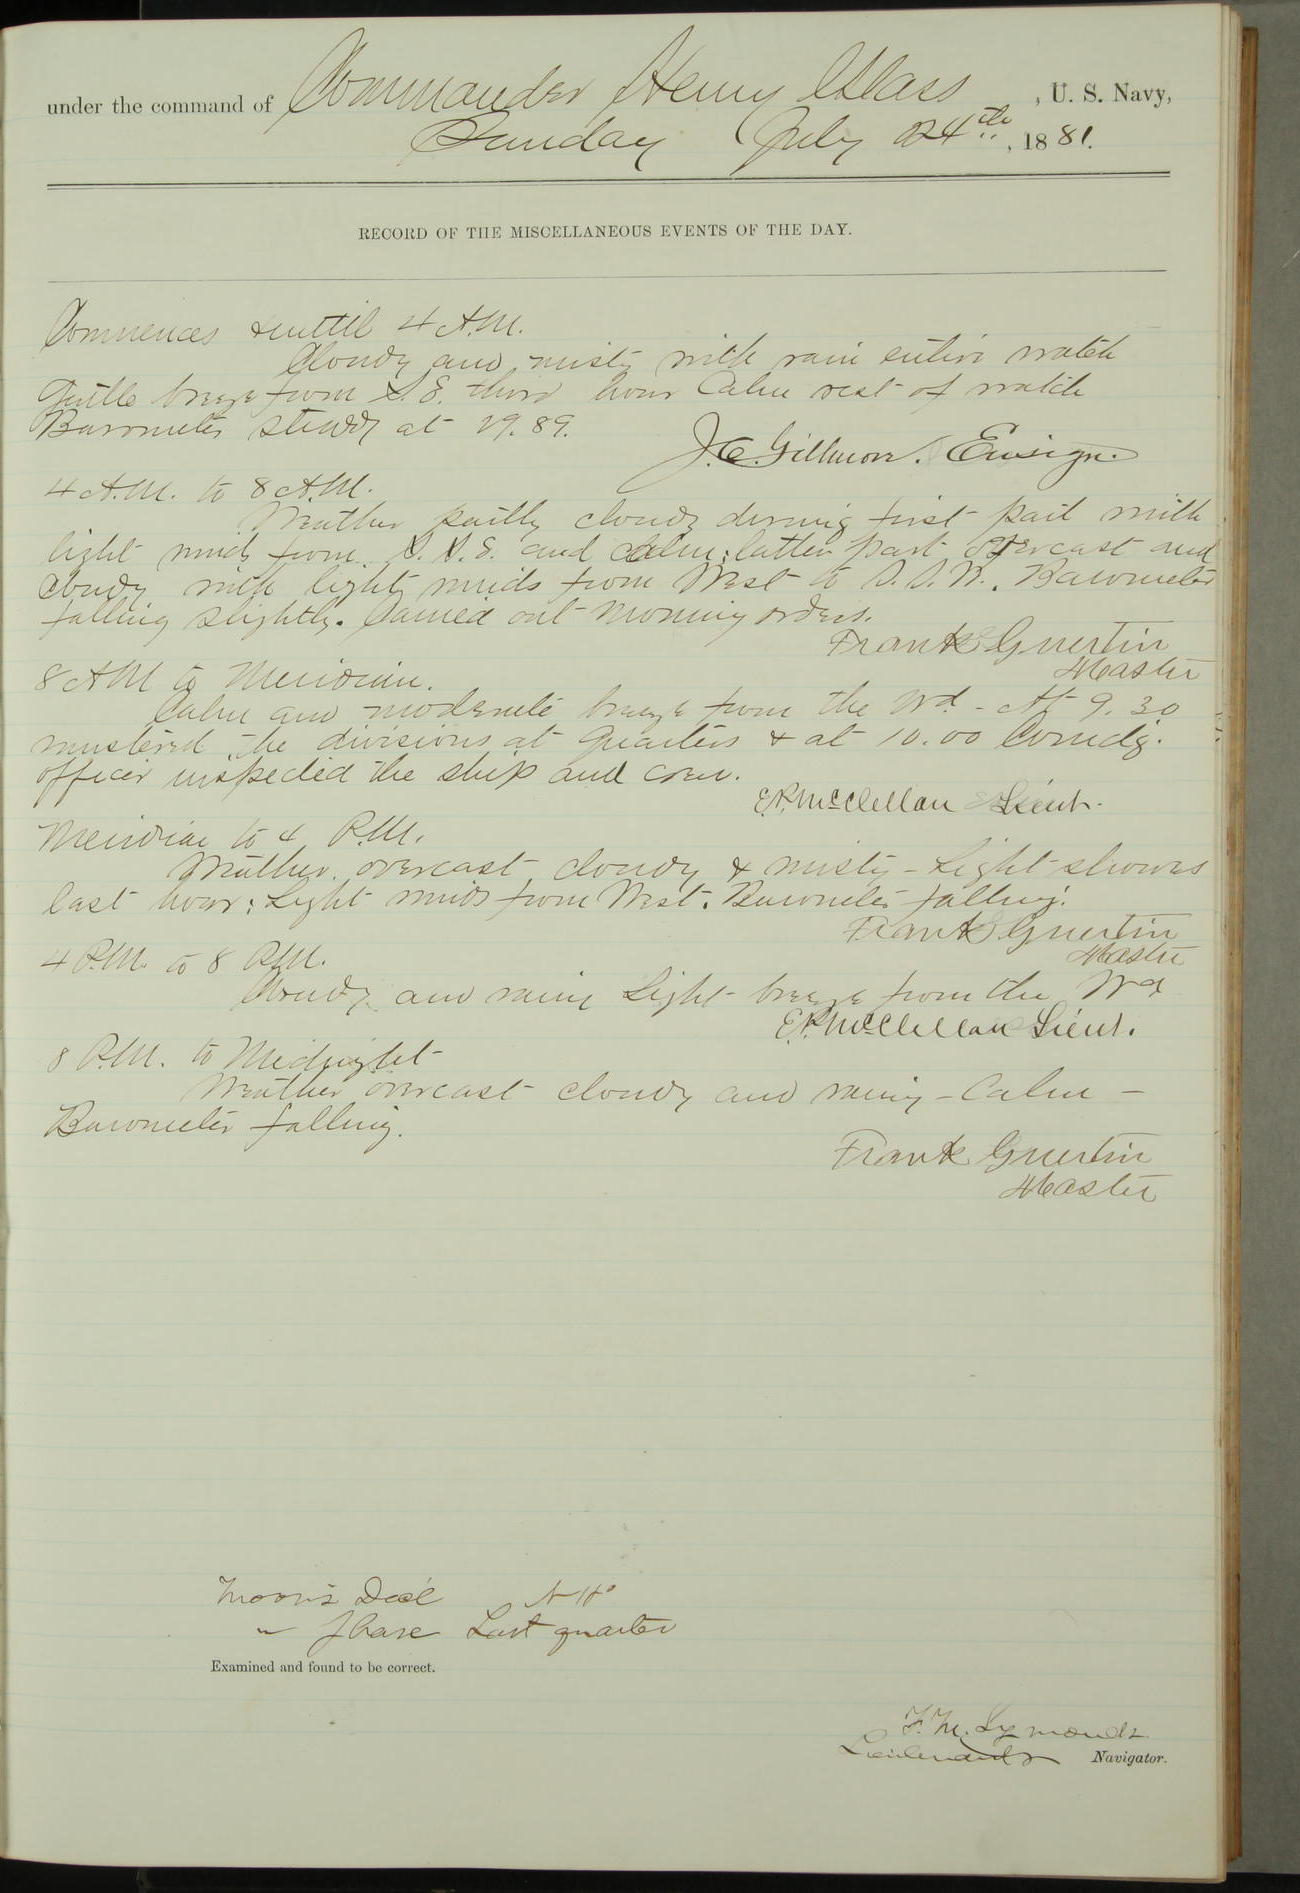 under the command of Commander Henry Glass, U. S. Navy,
Sunday July 24th, 1881.
RECORD OF THE MISCELLANEOUS EVENTS OF THE DAY.
Commences & until 4 A.M.
Cloudy and misty with rain entire watch
Gentle breeze from S.E. third hour Calm rest of watch
Barometer steady at 29.89.
J.C. Gillmore. Ensign.
4 A.M. to 8 A.M.
Weather partly cloudy during first part with
light winds from S.S.E. and calm; latter part overcast and
cloudy with light winds from West to S.S.W. Barometer
falling slightly. Carried out morning orders.
Frank Guertin
Master
8 A.M to Meridian.
Calm and moderate breeze from the Wd. - At 9.30
mustered the divisions at Quarters & at 10.00 Comdg.
officer inspected the ship and crew.
E.P. McClellan Lieut.
Meridian to 4 P.M.
Weather overcast cloudy & misty - Light showers
last hour; Light winds from West. Barometer falling.
Frank Guertin
Master
4 P.M. to 8 P.M.
Cloudy and rainy Light breeze from the Wd
E.P. McClellan Lieut.
8 P.M. to Midnight
Weather overcast cloudy and rainy - Calm -
Barometer falling.
Frank Guertin
Master
Moon's Decl N
" Phase Last quarter
Examined and found to be correct.
F. M. Symonds
Lieutenant Navigator.